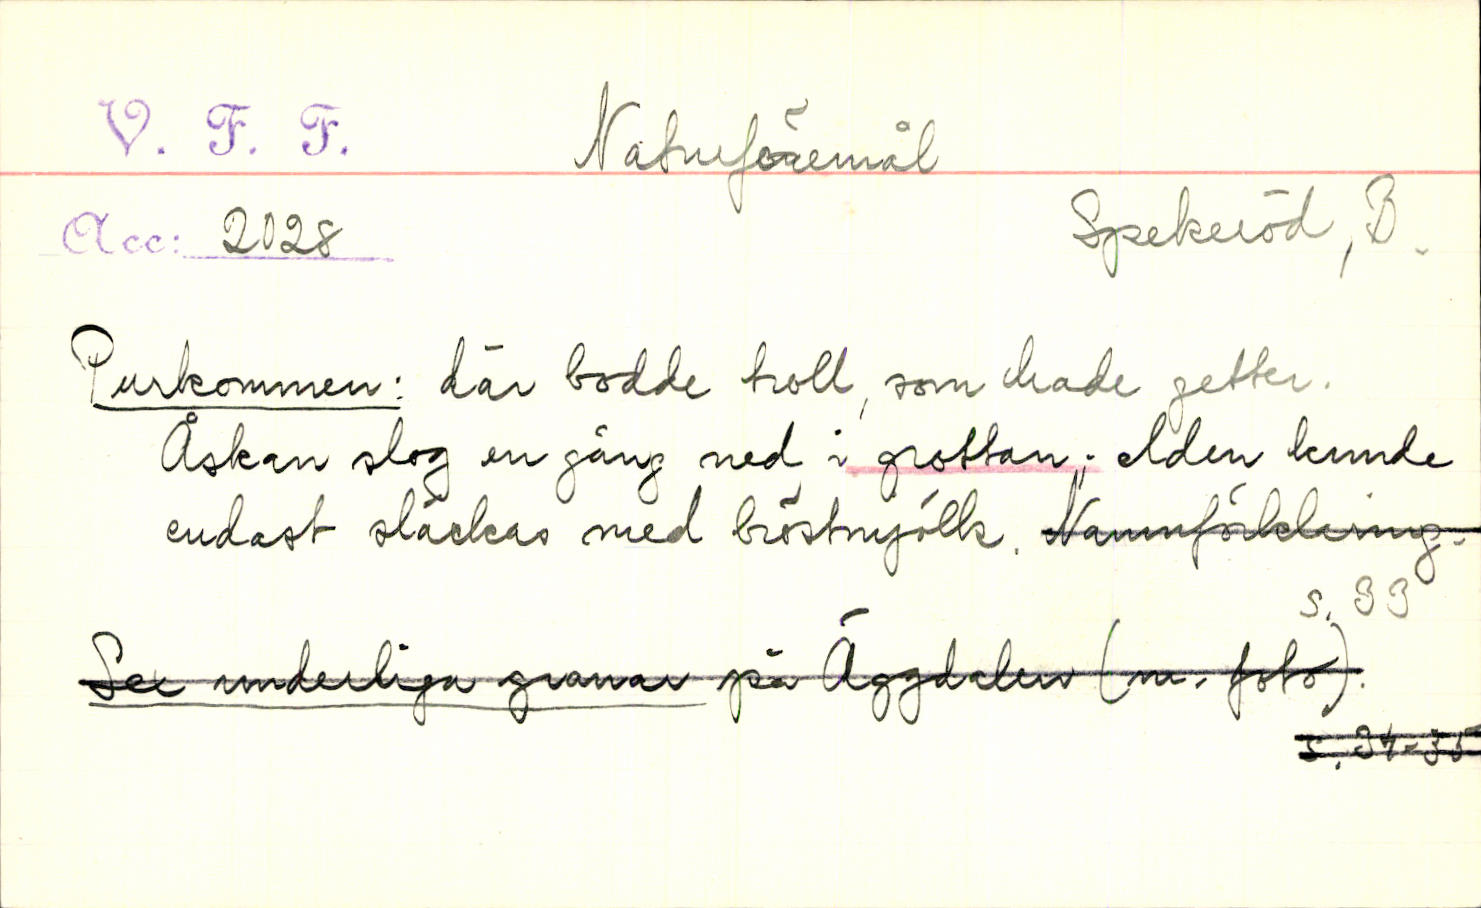 V. F. F. Naturföremål
Acc: 2028 Spekeröd, B.
Purkommen: där bodde troll, som hade getter.
Åskan slog en gång ned i grottan; elden kunde
endast släckas med bröstmjölk. Namnförklaring.
s. 33
Sex underliga granar på Äggdalen (m. foto).
s. 34-35